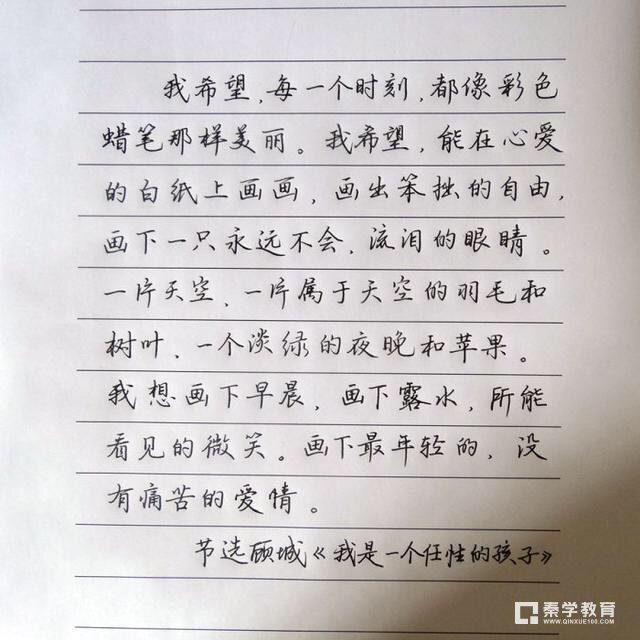 我希望,每一个时刻,都像彩色
蜡笔那样美丽。我希望,能在心爱
的白纸上画画,画出笨拙的自由,
画下一只永远不会,流泪的眼睛。
一片天空,一片属于天空的羽毛和
树叶、一个淡绿的夜晚和苹果。
我想画下早晨,画下露水,所能
看见的微笑。画下最年轻的,没
有痛苦的爱情。
节选顾城《我是一个任性的孩子》
秦学教育
WWW.QINXUE100.COM